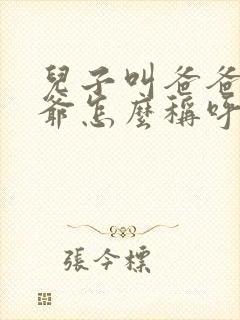 兒子叫爸爸
爺怎麼稱呼
張今標